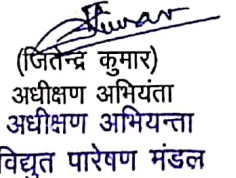 (जितेन्द्र कुमार)
अधीक्षण अभियंता
अधीक्षण अभियन्ता
विद्युत पारेषण मंडल